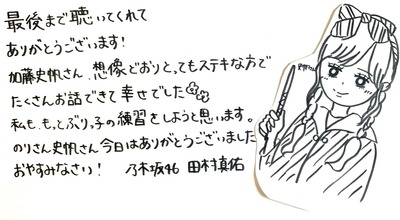 最後まで聴いてくれて
ありがとうございます!
加藤史帆さん、想像どおりとってもステキな方で
たくさんお話できて幸せでした
私も、もっとぶりっ子の練習をしようと思います。
のりさん史帆さん今日はありがとうございました
おやすみなさい! 乃木坂46 田村真佑